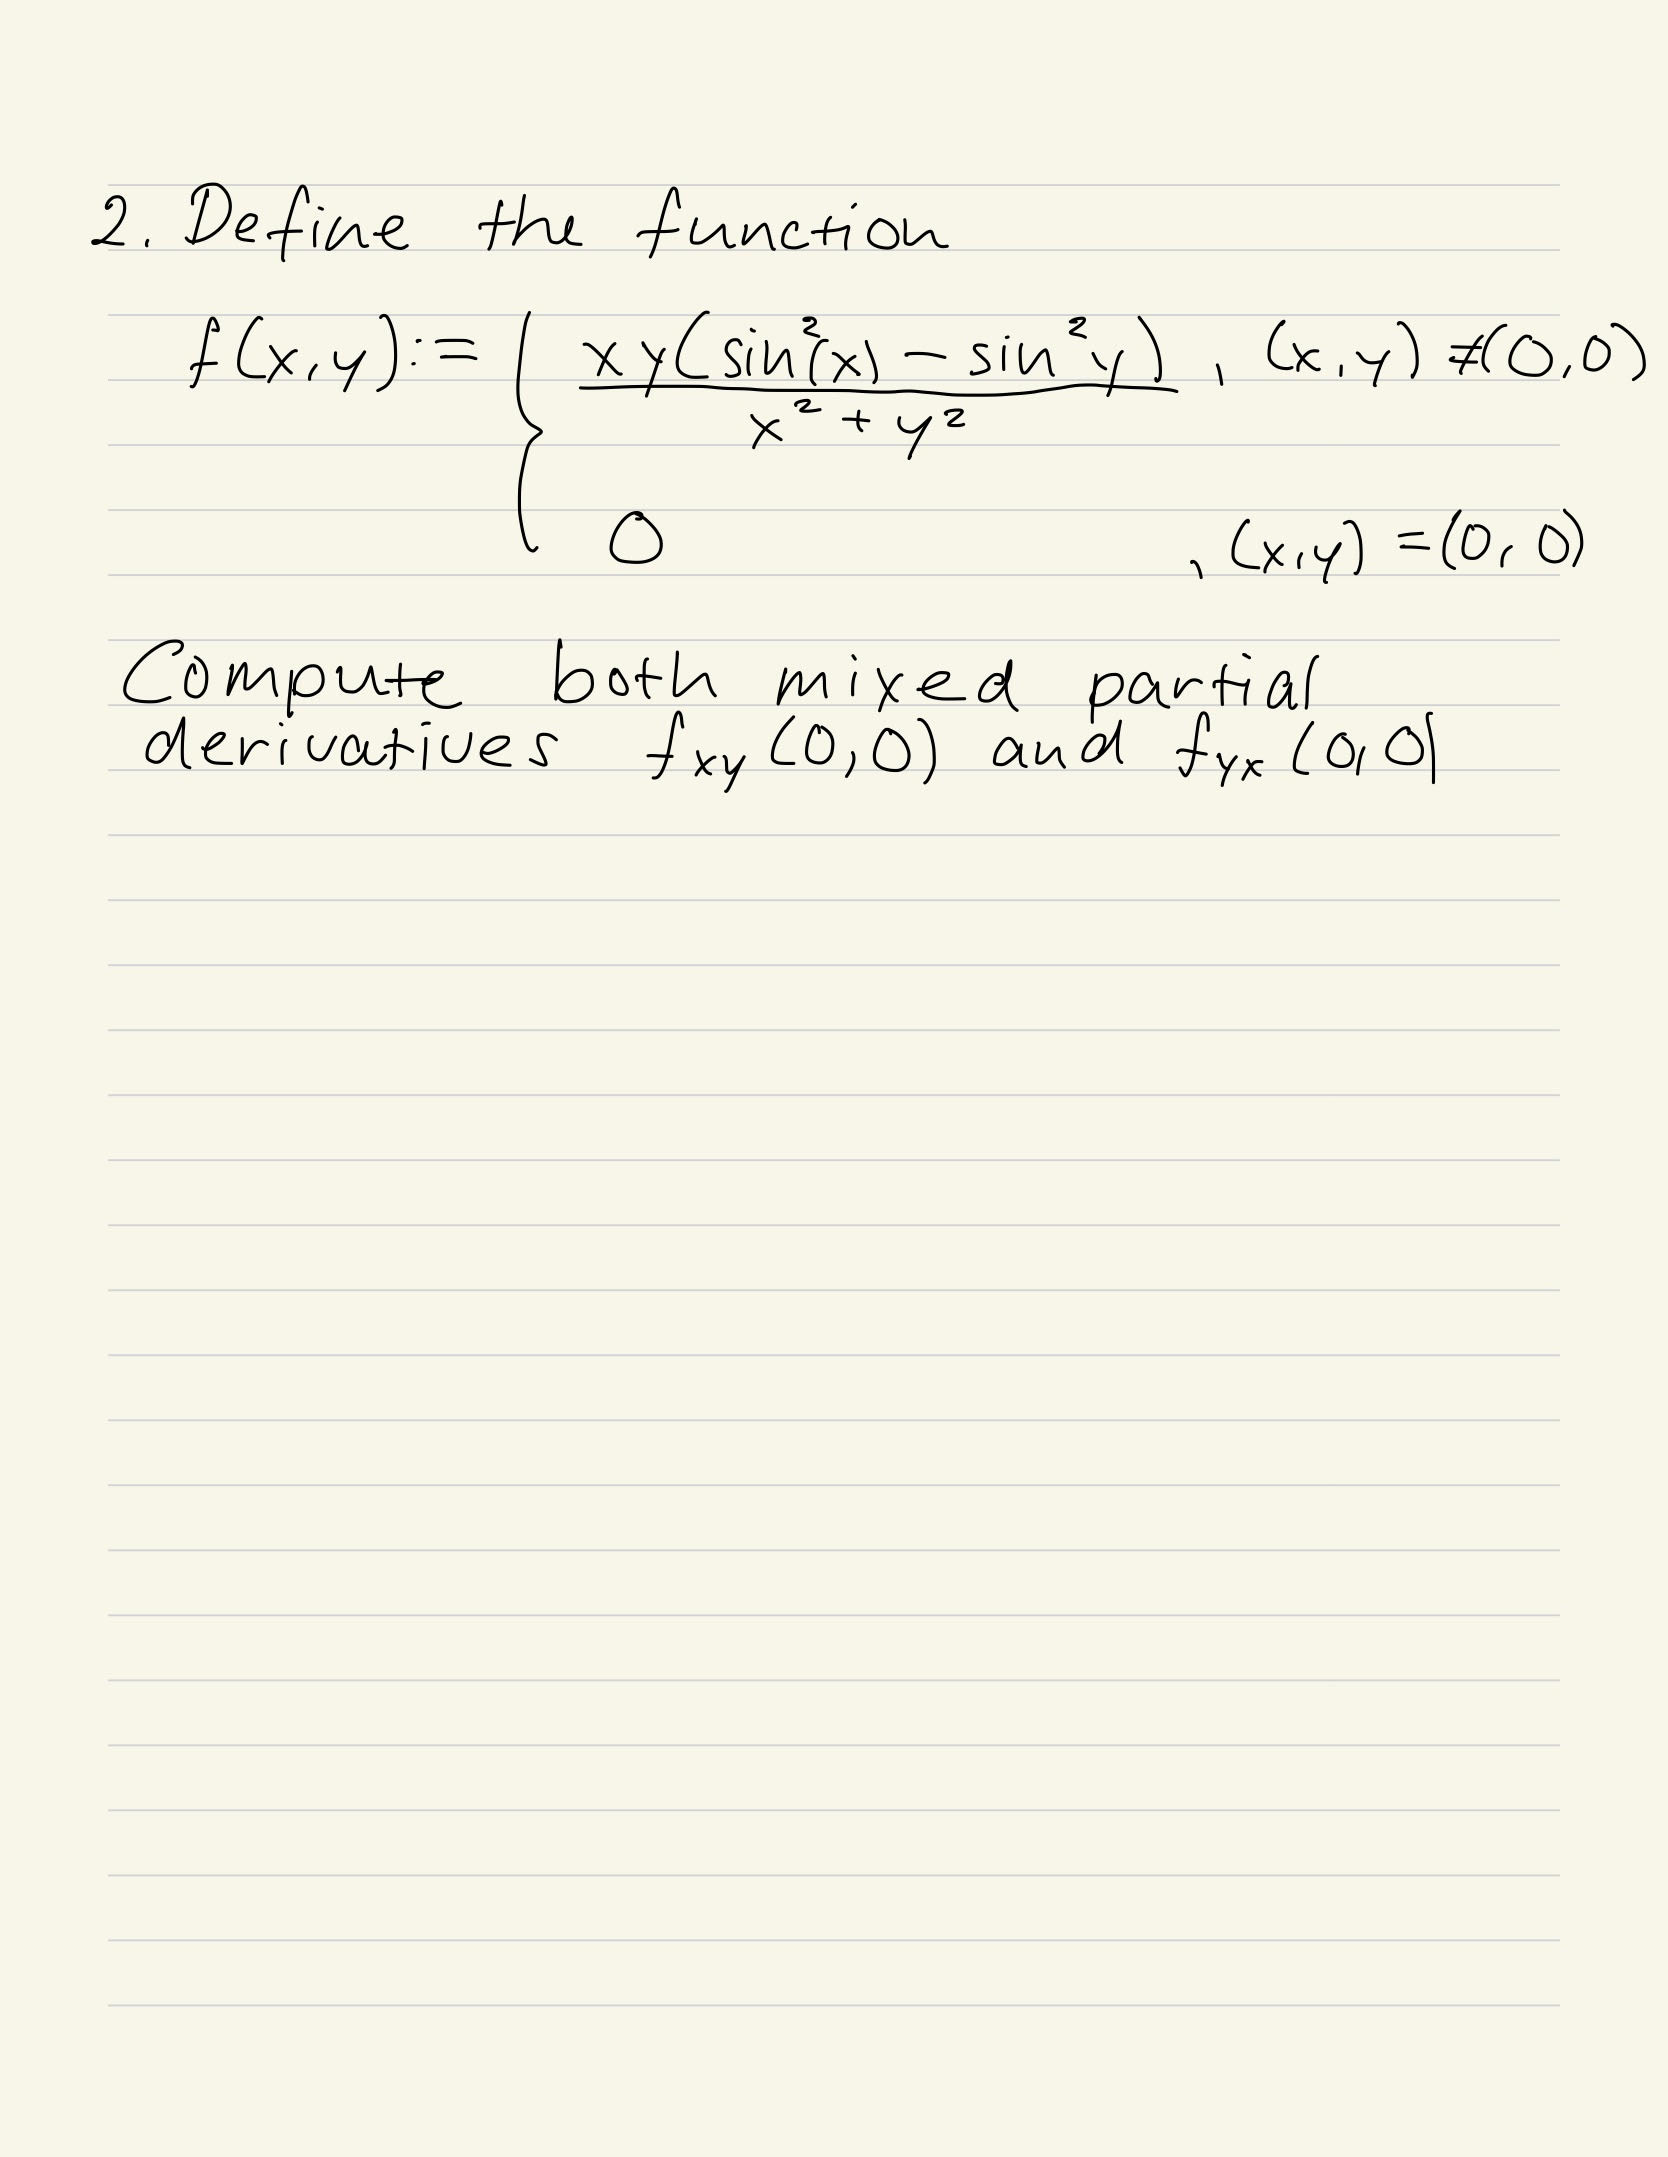 2. Define the function
f(x,y):= { xy(sin²(x) − sin²y) / x² + y² , (x,y) ≠ (0,0)
0 , (x,y) = (0,0)
Compute both mixed partial
derivatives f_xy (0,0) and f_yx (0,0)